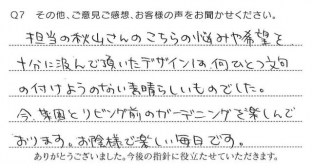 Q7 その他、ご意見ご感想、お客様の声をお聞かせください。
担当の秋山さんのこちらの悩みや希望を
十分に汲んで頂いたデザインは、何ひとつ文句
の付けようのない素晴らしいものでした。
今、菜園とリビング前のガーデニングを楽しんで
おります。お陰様で楽しい毎日です。
ありがとうございました。今後の指針に役立たせていただきます。